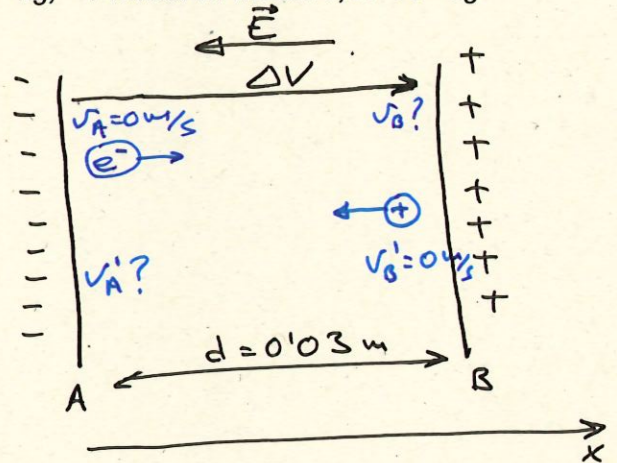 E
ΔV
v_A=0 m/s
v_B?
e⁻
+
v_A'?
v_B'=0 m/s
d=0'03 m
A
B
x
- - - - - - - -
+ + + + + + +